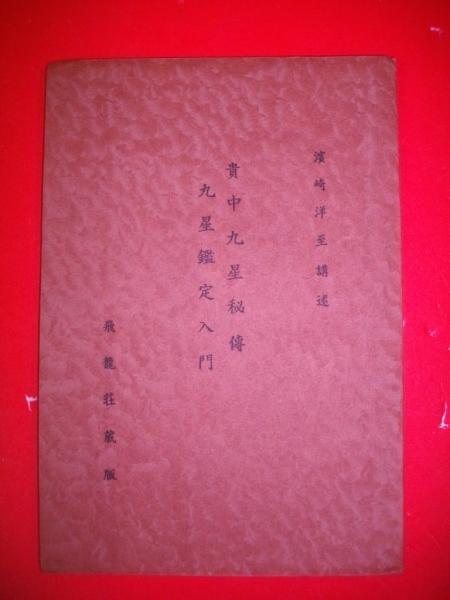 濱崎洋至講述
貴中九星秘傳
九星鑑定入門
飛龍莊藏版